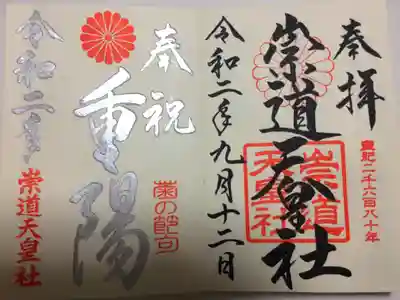 奉拝
皇紀二千六百八十年
崇道天皇社
崇道天皇社
令和二年九月十二日
奉祝
菊の節句
重陽
令和二年
崇道天皇社